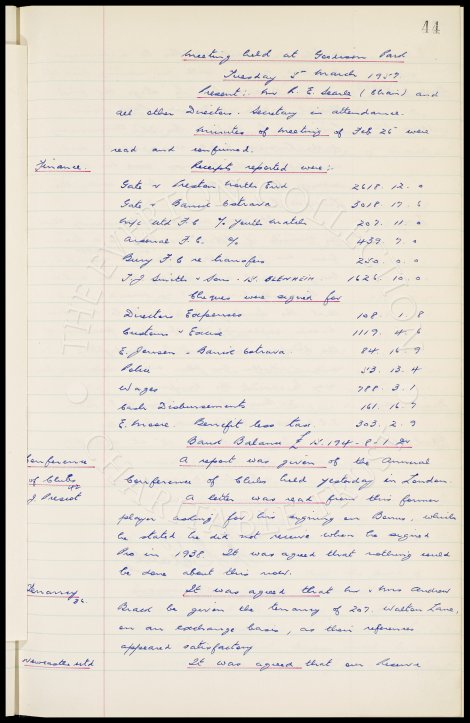 44
Meeting held at Goodison Park
Tuesday 5th March 1957
Present:- Mr R. E. Searle (Chair) and
all other Directors. Secretary in attendance.
Minutes of meeting of Feb 26 were
read and confirmed.
Finance. Receipts reported were:-
Gate v Preston North End 2618. 12. 0
Gate v Banik Ostrava 3018. 17. 6
M/c Utd F.C. % Youth match 207. 11. 0
Arsenal F.C. % 439. 7. 0
Bury F.C. re transfers 250. 0. 0
T. J. Smith & Sons. 1626. 10. 0
Cheques were signed for
Directors Expenses 108. 1. 8
Customs & Excise 1119. 4. 6
E. Jensen. Banik Ostrava. 84. 16. 9
Police 53. 13. 4
Wages 788. 3. 1
Cash Disbursements 161. 16. 7
E. Moore. Benefit less tax. 303. 2. 9
Bank Balance £
Conference A report was given of the Annual
of Clubs Conference of Clubs held yesterday in London
J Prescot A letter was read from this former
player asking for his signing on Bonus, which
he stated he did not receive when he signed
Pro in 1938. It was agreed that nothing could
be done about this now.
Tenancy It was agreed that Mr & Mrs Andrew
be given the tenancy of 207. Walton Lane,
on an exchange basis, as their references
appeared satisfactory
Newcastle Utd It was agreed that our Reserve
THE EVERTON COLLECTION
CHARITABLE